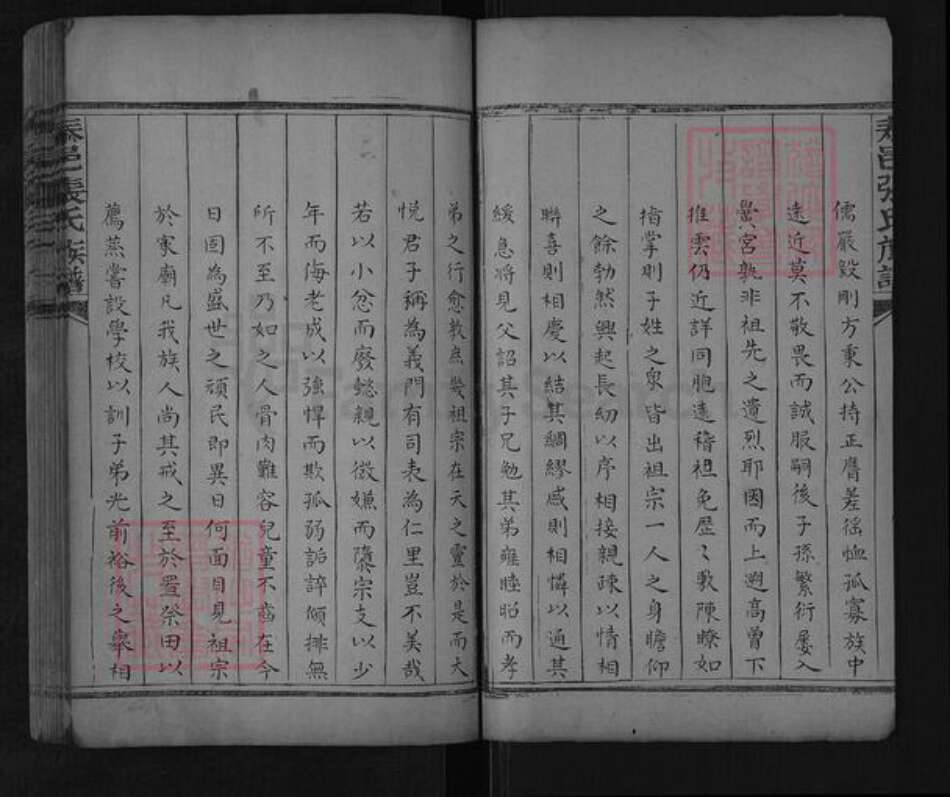 儒嚴毅剛方秉公持正膺差徭恤孤寡族中
遠近莫不敬畏而誠服嗣後子孫繁衍屢入
黌宮孰非祖先之遺烈耶因而上遡高曾下
推雲仍近詳同胞遠稽袒免歷〻敷陳瞭如
指掌則子姓之衆皆出祖宗一人之身瞻仰
之餘勃然興起長幼以序相接親疎以情相
聯喜則相慶以結其綢繆戚則相憐以通其
緩急將見父詔其子兄勉其弟雍睦昭而孝
弟之行愈敦庶幾祖宗在天之靈於是而大
悅君子稱為義門有司表為仁里豈不美哉
若以小忿而廢懿親以微嫌而隳宗支以少
年而侮老成以強悍而欺孤弱詬誶傾排無
所不至乃如之人骨肉難容兒童不齒在今
日固為盛世之頑民即異日何面目見祖宗
於家廟凡我族人尚其戒之至於置祭田以
薦蒸嘗設學校以訓子弟光前裕後之舉相
泰邑張氏族譜